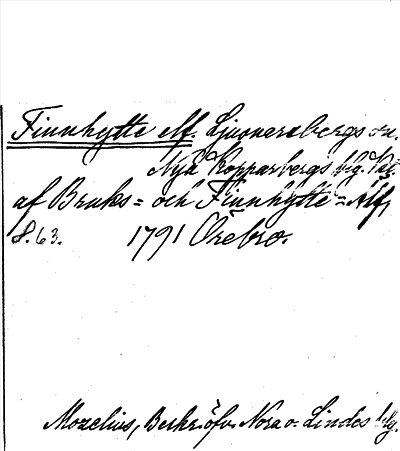 Finnhytte elf. Ljusnarsbergs sn.
Nya Kopparbergs blg. Del
af Bruks= och Finnhytte=Älf,
S. 63. 1791 Örebro.
Mozelius, Beskr. öfv. Nora o. Lindes blg.